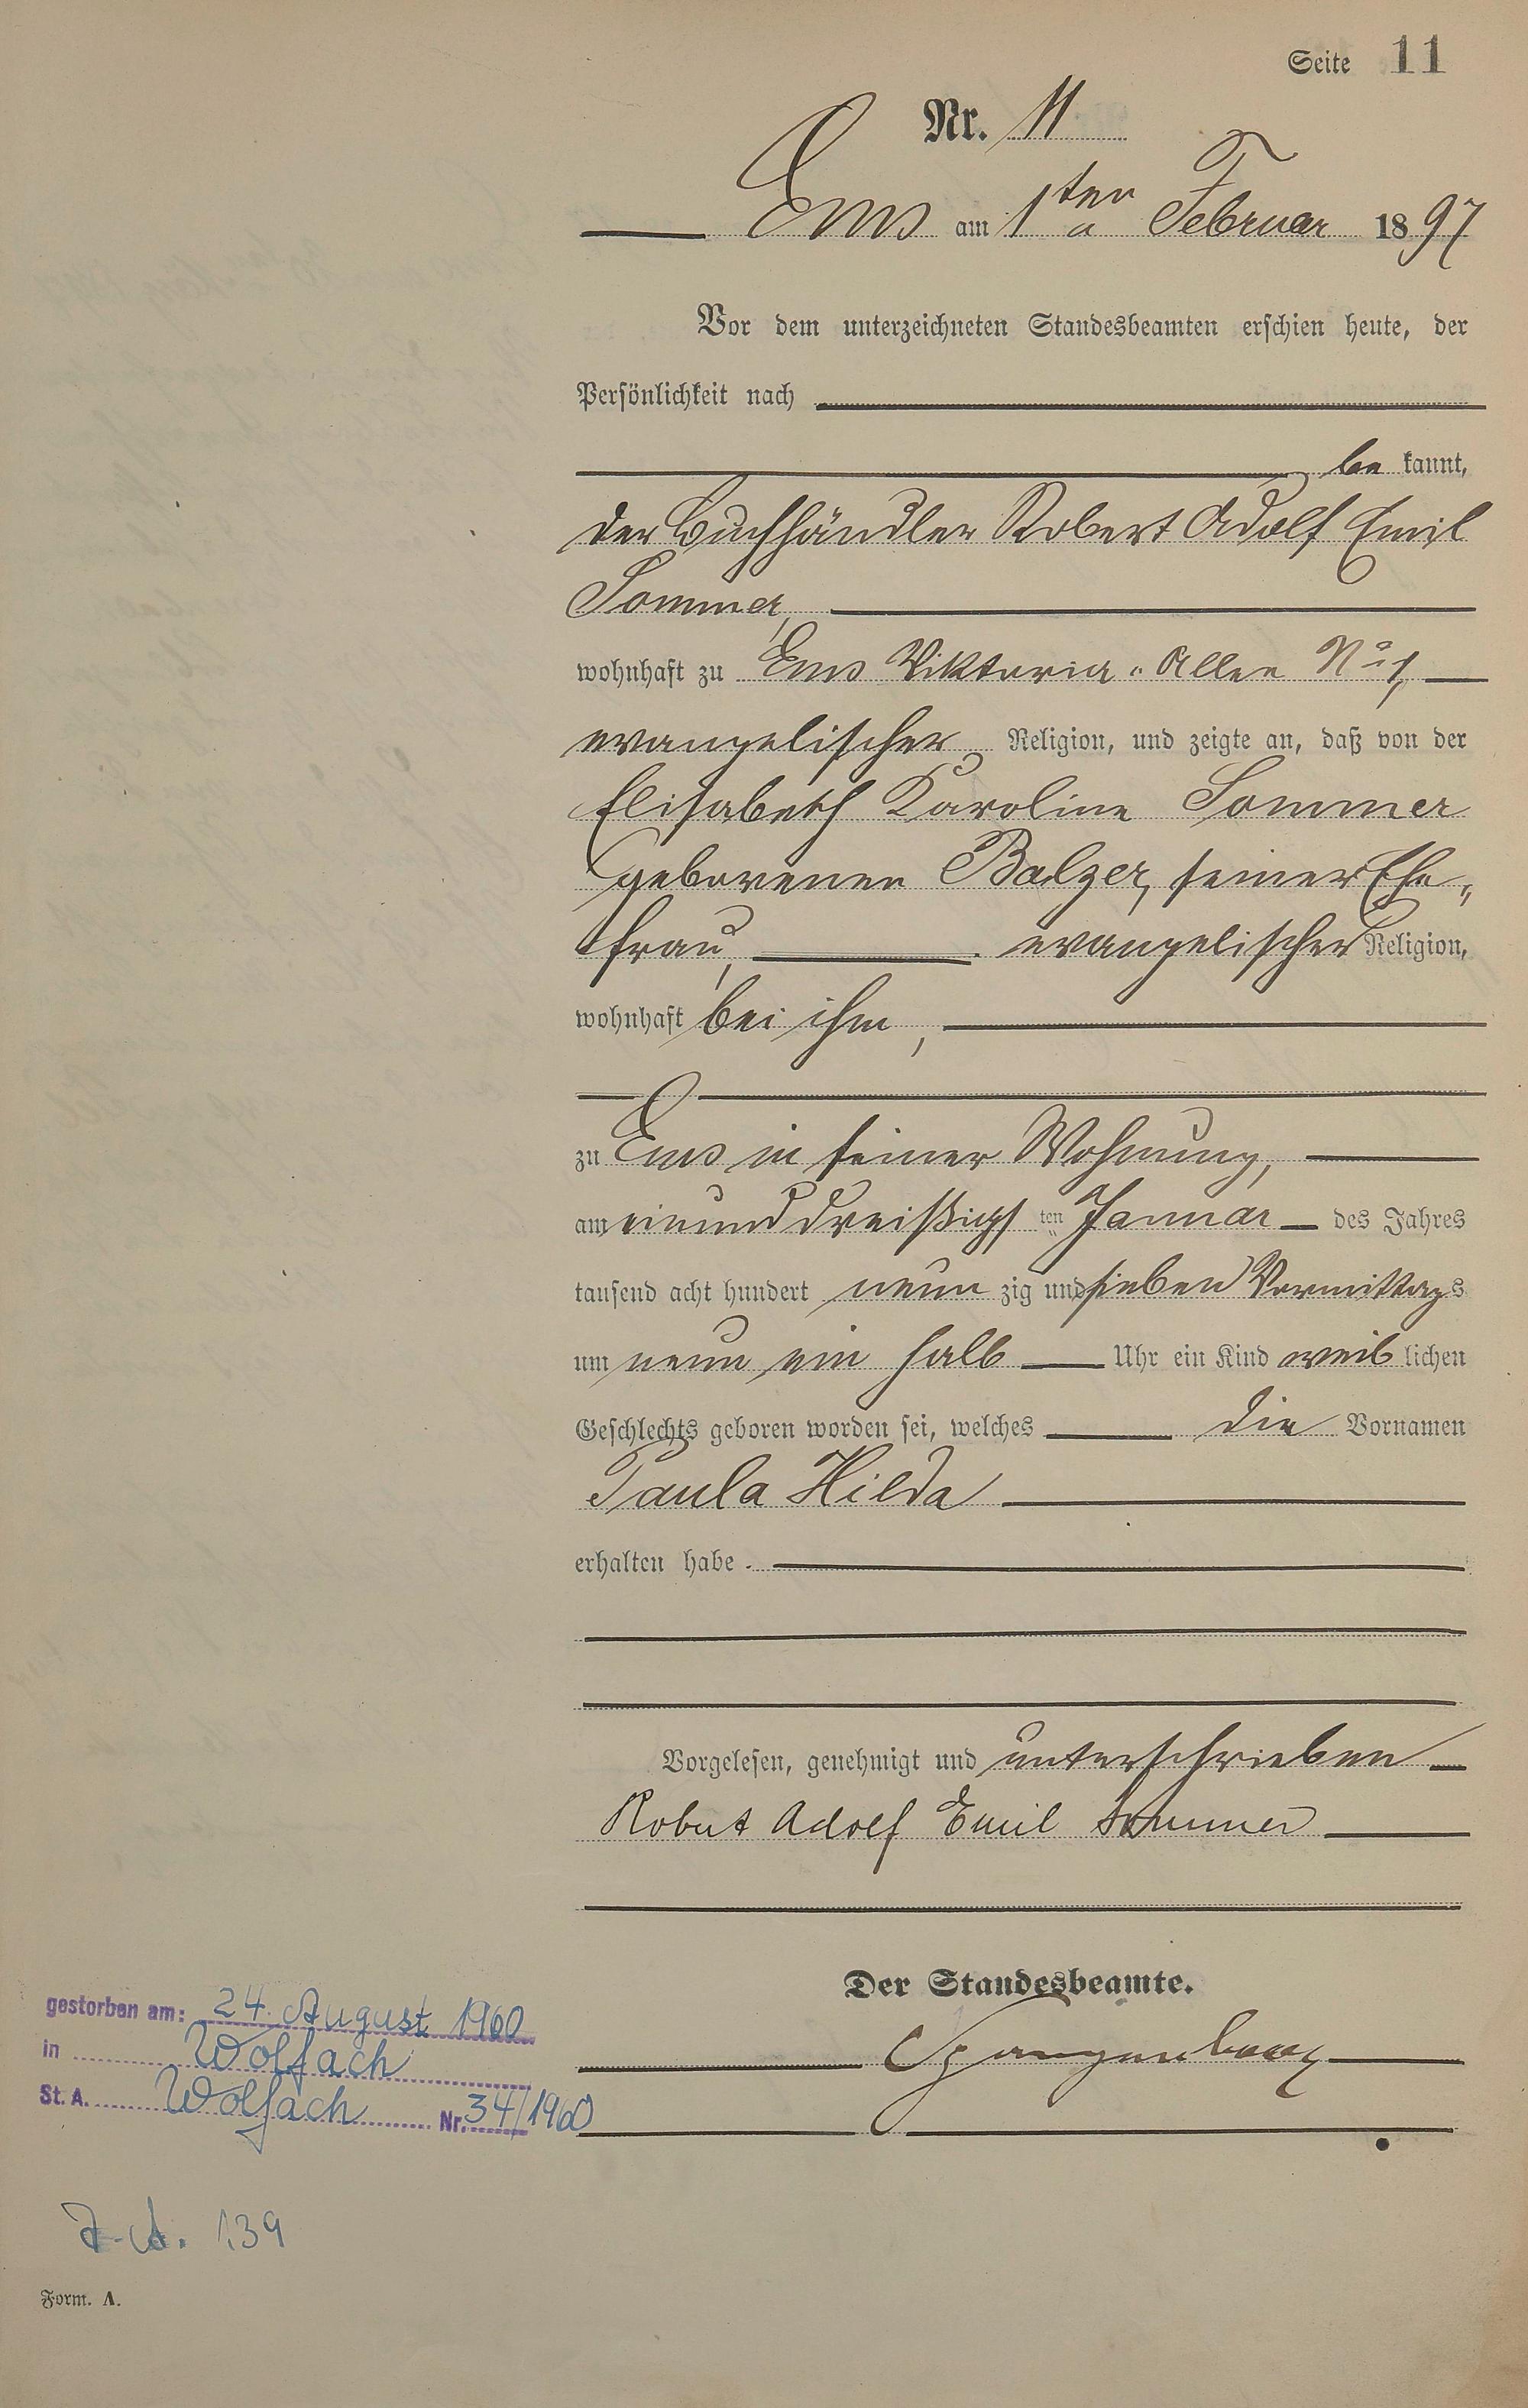 Seite 11
Nr. 11
Ems am 1ten Februar 1897
Vor dem unterzeichneten Standesbeamten erschien heute, der
Persönlichkeit nach
be kannt,
der Buchhändler Robert Adolf Emil
Sommer,
wohnhaft zu Ems Viktoria-Allee No 1,
evangelischer Religion, und zeigte an, daß von der
Elisabeth Karoline Sommer
geborenen Balzer, seiner Ehe-
frau, evangelischer Religion,
wohnhaft bei ihm,
zu Ems in seiner Wohnung,
am einund dreißigs ten Januar des Jahres
tausend acht hundert neun zig und sieben Vormittags
um neun ein halb Uhr ein Kind weib lichen
Geschlechts geboren worden sei, welches die Vornamen
Paula Hilda
erhalten habe.
Vorgelesen, genehmigt und unterschrieben
Robert Adolf Emil Sommer
Der Standesbeamte.
Spangenberg
gestorben am: 24. August 1960
in Wolfach
St. A. Wolfach Nr. 34/1960
139
Form. A.